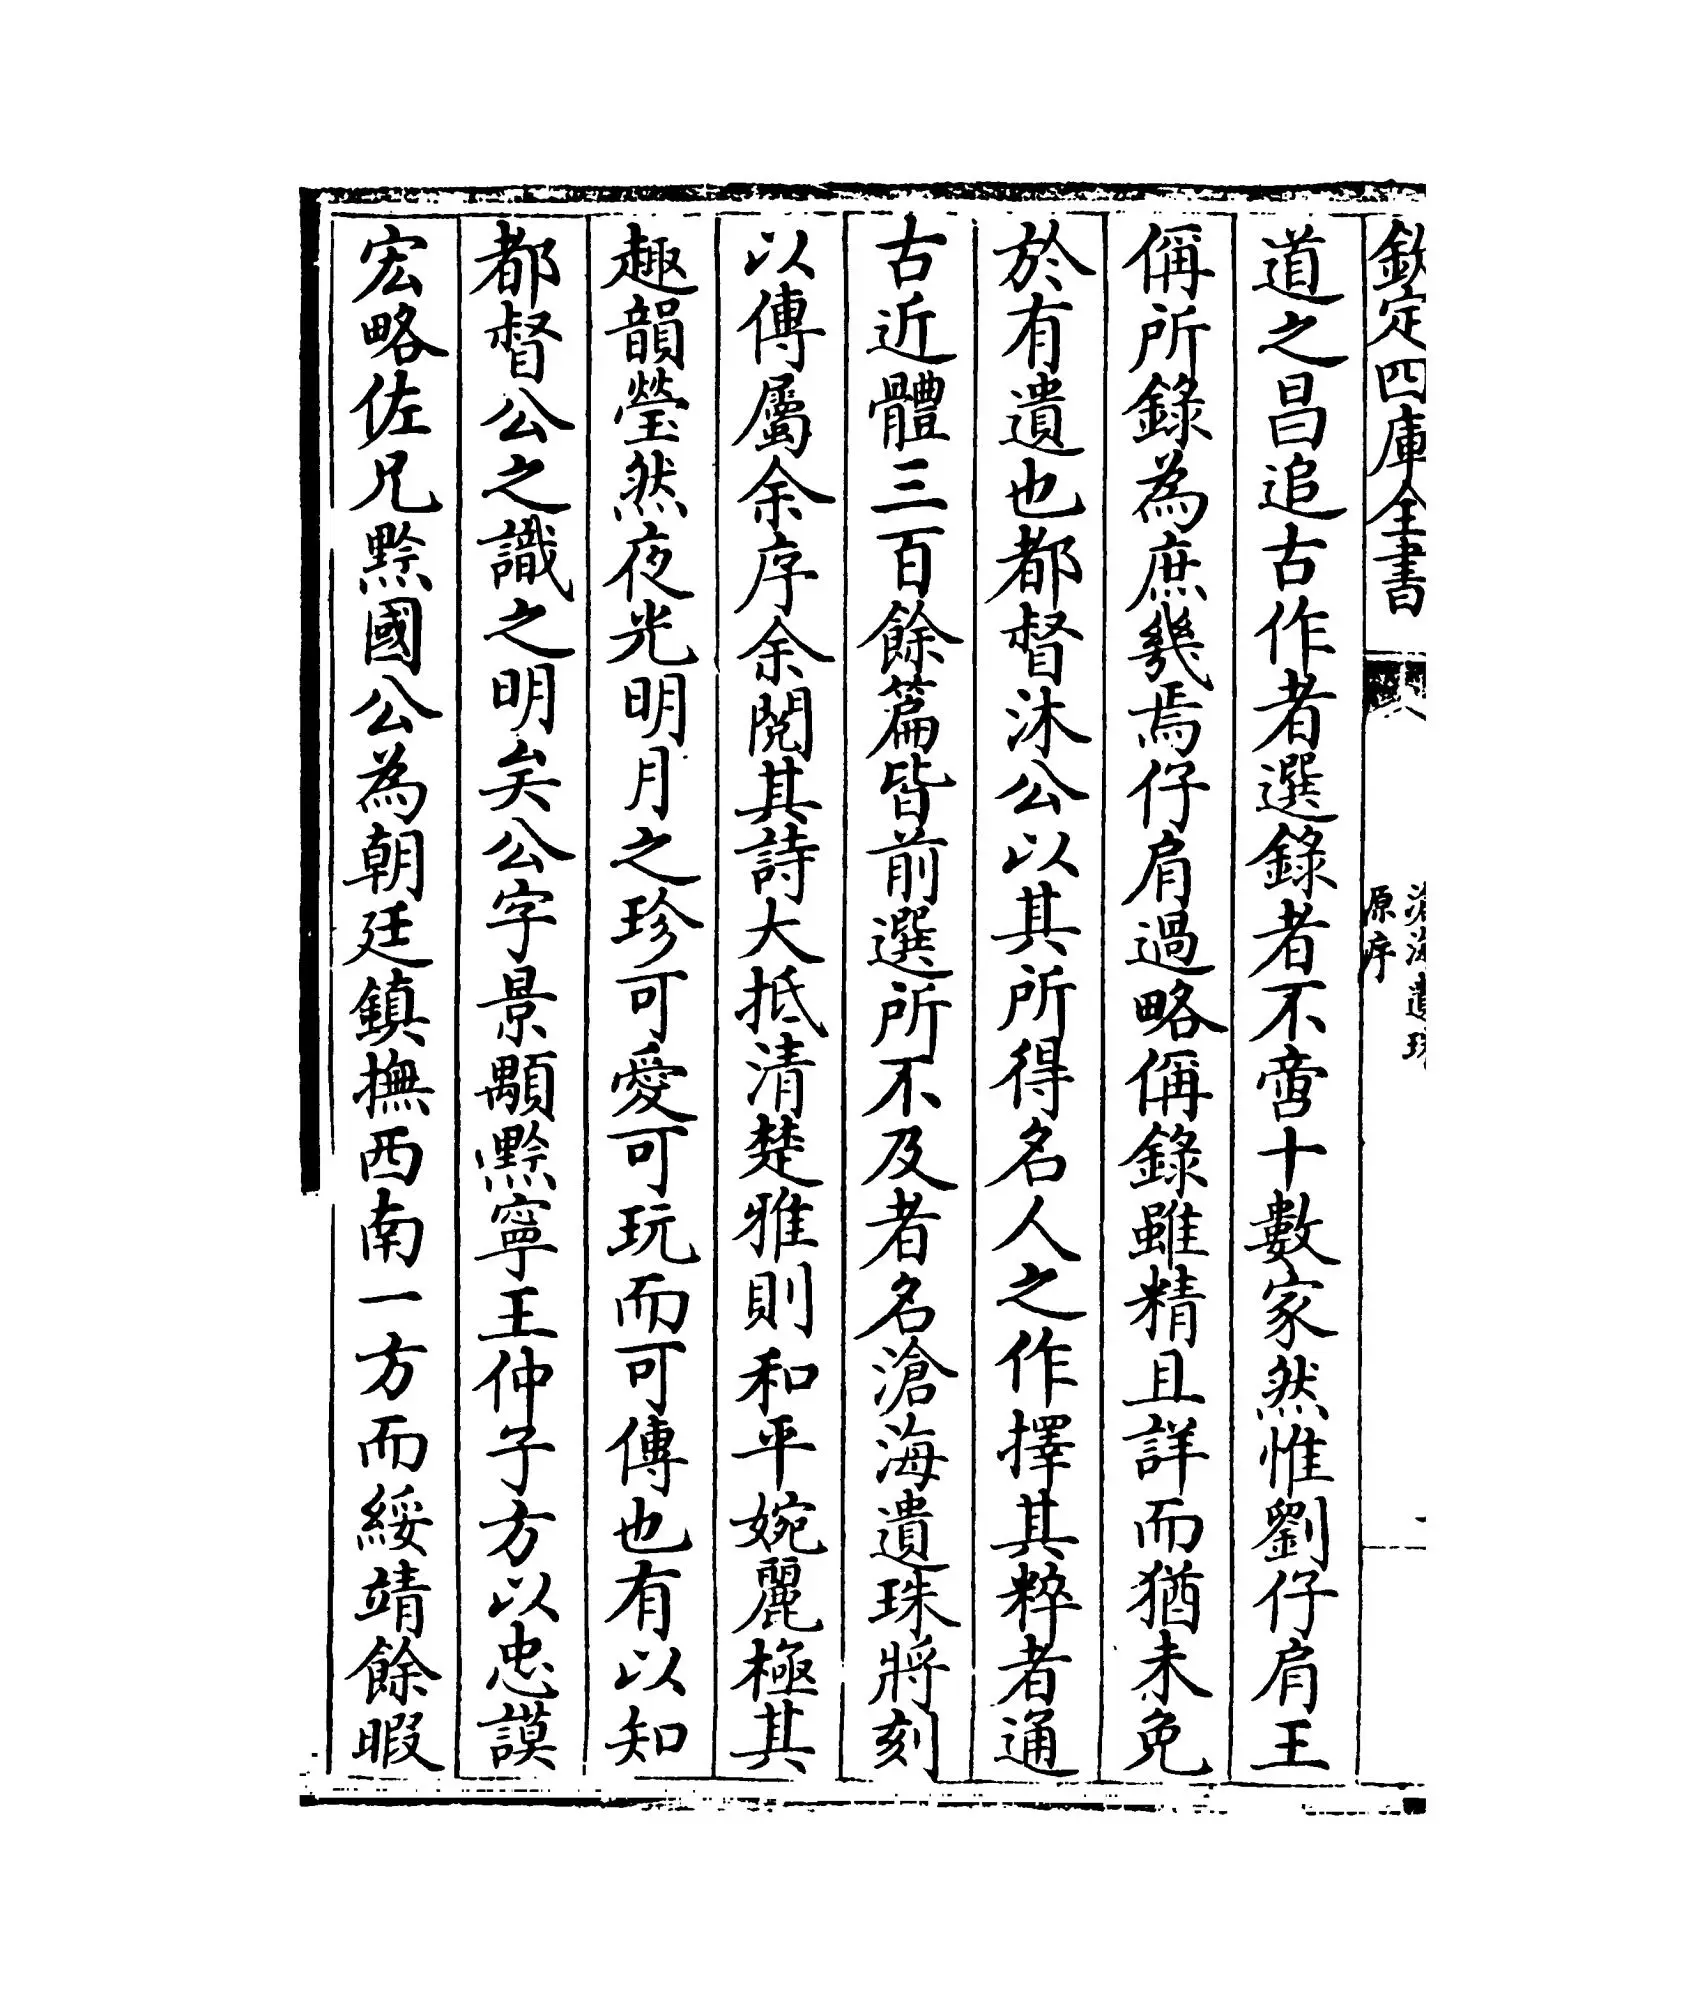 欽定四庫全書
滄海遺珠
原序
道之昌追古作者選錄者不啻十數家然惟劉仔肩王
偁所錄為庶幾焉仔肩過略偁錄雖精且詳而猶未免
於有遺也都督沐公以其所得名人之作擇其粹者通
古近體三百餘篇皆前選所不及者名滄海遺珠將刻
以傳屬余序余閱其詩大抵清楚雅則和平婉麗極其
趣韻瑩然夜光明月之珍可愛可玩而可傳也有以知
都督公之識之明矣公字景顒黔寧王仲子方以忠謨
宏略佐兄黔國公為朝廷鎮撫西南一方而綏靖餘暇